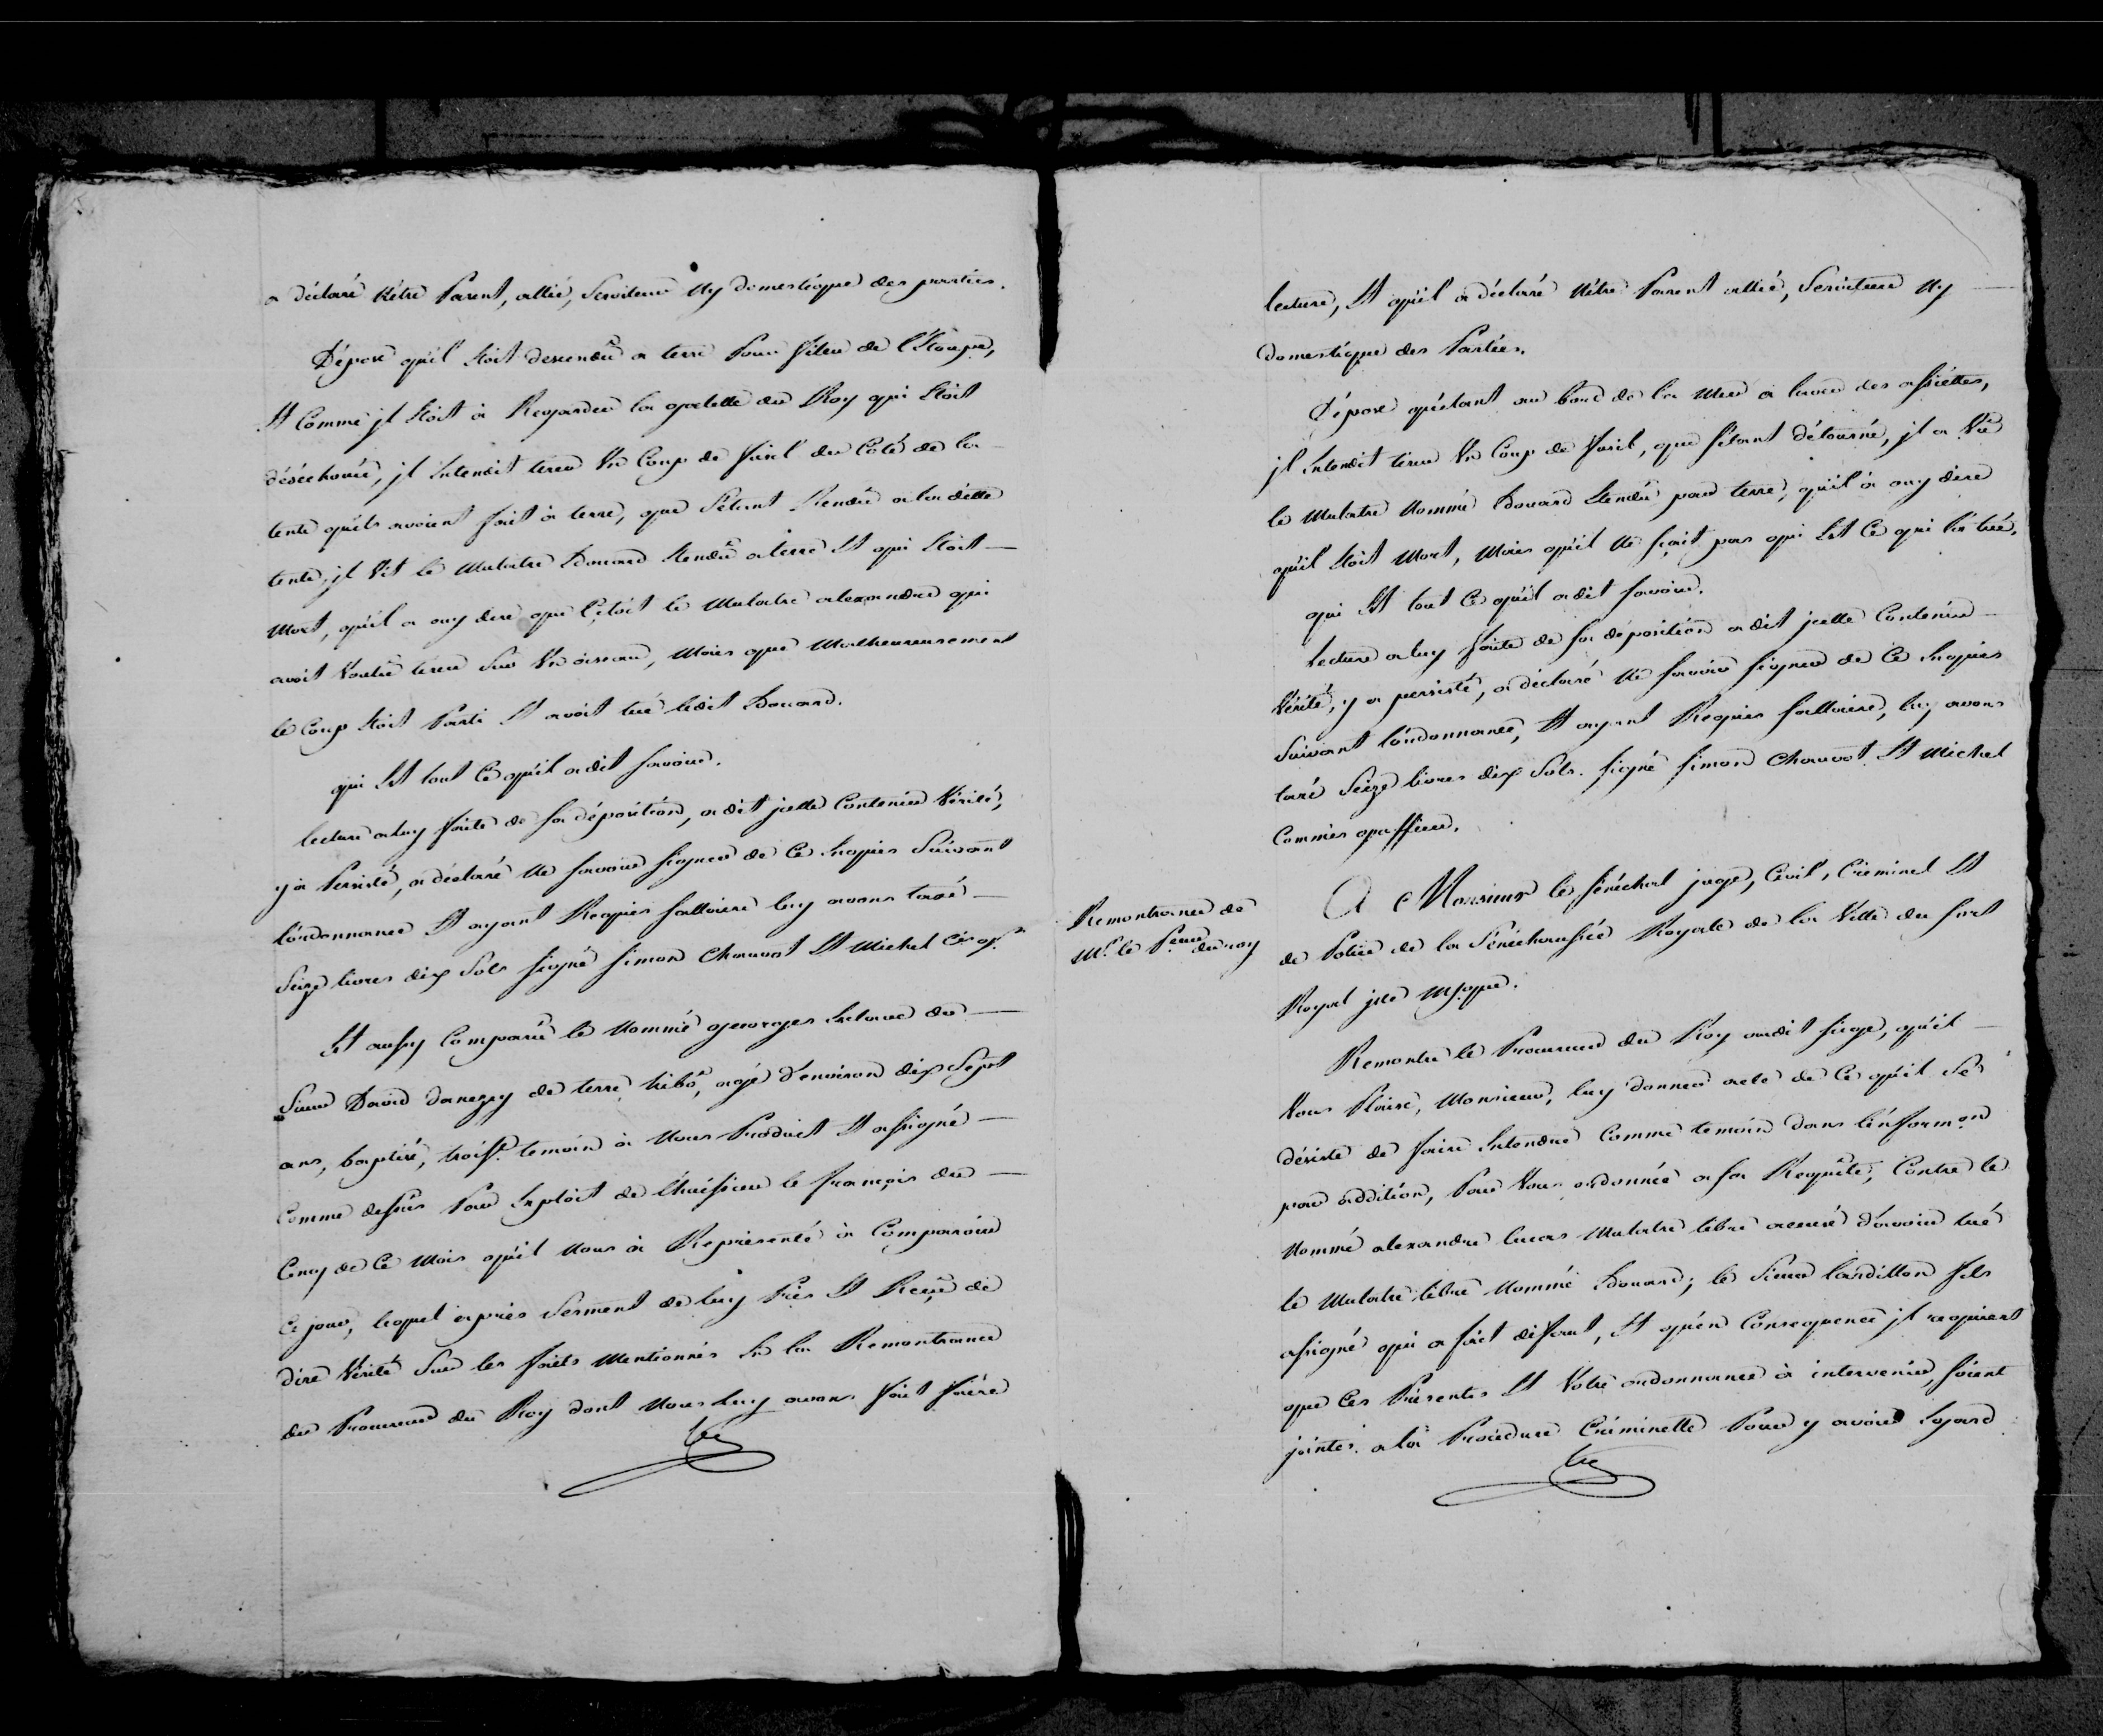 a déclaré n'être Parent, allié, Serviteur ny domestique des parties.
Dépose qu'il Etoit descendu a terre Pour filer de l'Etoupe,
Et Comme jl Etoit à Regarder la galette du Roy qui Etoit
déséchouée, jl Entendit tirer Un Coup de fusil du Côté de la
tente qu'ils avoient fait à terre, que S'étant Rendu a la dette
tente, jl Vit le Mulatre Edouard Etendu a terre Et qui Etoit
Mort, qu'il a ouy dire que C'étoit le Mulatre alexandre qui
avoit Voulu tirer Sur Un oiseau, Mais que Malheureusement
le Coup Etoit Parti Et avoit tué ledit Edouard.
qui Est tout Ce qu'il a dit savoir.
lecture a luy faite de sa déposition, a dit jcelle Contenir Vérité,
y a Persisté, a déclaré Ne savoir signer de Ce Enquis Suivant
l'ordonnance Et ayant Requis sallaire luy avons taxé
Seize livres dix Sols signé simon Chauvot Et Michel Cis gf.er
Et aussy Comparu le Nommé georges Esclave du
Sieur David danezey de terre, tribô, agé d'environ dix Sept
ans, baptisé, trois.e temoin à Nous Produit Et assigné
Comme dessus Par Exploit de l'huissier le françois du
Cinq de Ce Mois qu'il Nous à Représenté à Comparoir
Ce jour, lequel après Serment de luy Pris Et Reçu de
dire Vérité Sur les faits Mentionnés En la Remontrance
du Procureur du Roy dont Nous Luy avons fait faire
lecture, Et qu'il a déclaré N'être Parent allié, Serviteur Ny
domestique des Parties.
Dépose qu'étant au bord de la Mer à laver des assiettes,
jl Entendit tirer Un Coup de fusil, que s'étant détourné, jl a Vu
le Mulatre Nommé Edouard Etendu par terre, qu'il à ouy dire
qu'il Etoit Mort, Mais qu'il Ne sçait pas qui Est Ce qui l'a tué,
qui Est tout Ce qu'il a dit savoir.
Lecture a luy faite de sa déposition a dit jcelle Contenir
Vérité, y a persisté, a déclaré Ne savoir signer de Ce Enquis
Suivant l'ordonnance, Et ayant Requis sallaire, luy avons
taxé Seize livres dix Sols. signé simon Chauvot Et Michel
Commis greffier.
Remontrance de
M.r le P.eur du roy
A Monsieur le sénéchal juge, Civil, Criminel Et
de Police de la Sénéchaussée Royale de la Ville du fort
Royal jsle M/que.
Remontre le Procureur du Roy audit siege, qu'il
Vous Plaise, Monsieur, luy donner acte de Ce qu'il Se
désiste de faire Entendre Comme temoin dans l'inform.on
par addition, Par Vous ordonnée a sa Requête, Contre le
Nommé alexandre lucas Mulatre libre accusé d'avoir tué
le Mulatre libre Nommé Edouard; le Sieur lardillon fils
assigné qui a fait défaut, Et qu'en Consequence jl requiert
que Ces Présentes Et Votre ordonnance à intervenir, soient
jointes a la Procédure Criminelle Pour y avoir Egard